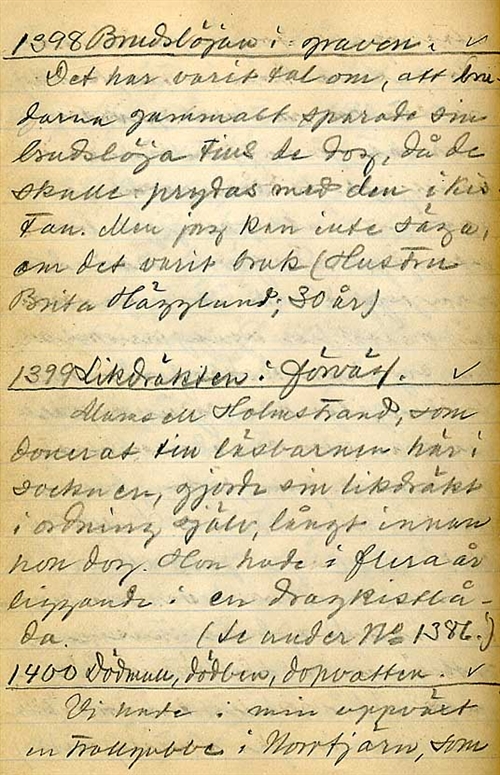 1398 Brudslöjan i graven. ✓
Det har varit tal om, att bru-
darna gammalt sparade sin
brudslöja tills de dog, då de
skulle prydas med den i kis
tan. Men jag kan inte säga,
om det varit bruk (Hustru
Brita Hägglund; 30 år)
1399 Likdräkten i förväg. ✓
Mamsell Holmstrand, som
donerat till läsbarnen här i
socknen, gjorde sin likdräkt
i ordning själv, långt innan
hon dog. Hon hade i flera år
liggande i en dragkistlå-
da. (Se under No 1386.)
1400 Dödmull, dödben, dopvatten. ✓
Vi hade i min uppväxt
en trollgubbe i Norrtjärn, som